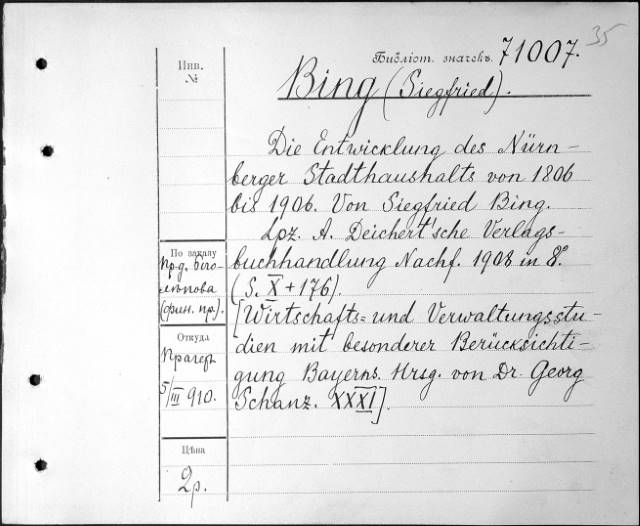 35
Библіот. значекъ. 71007.
Инв.
№
Bing (Siegfried).
Die Entwicklung des Nürn-
berger Stadthaushalts von 1806
bis 1906. Von Siegfried Bing.
Lpz. A. Deichert'sche Verlags-
buchhandlung Nachf. 1908 in 8.º
(S. X + 176).
[Wirtschafts= und Verwaltungsstu-
dien mit besonderer Berücksichti-
gung Bayerns. Hrsg. von Dr. Georg
Schanz. XXXI].
По заказу
прд. Бого-
лѣпова
(фин. пр.).
Откуда
Прагеръ
5/III 910.
Цѣна
2р.